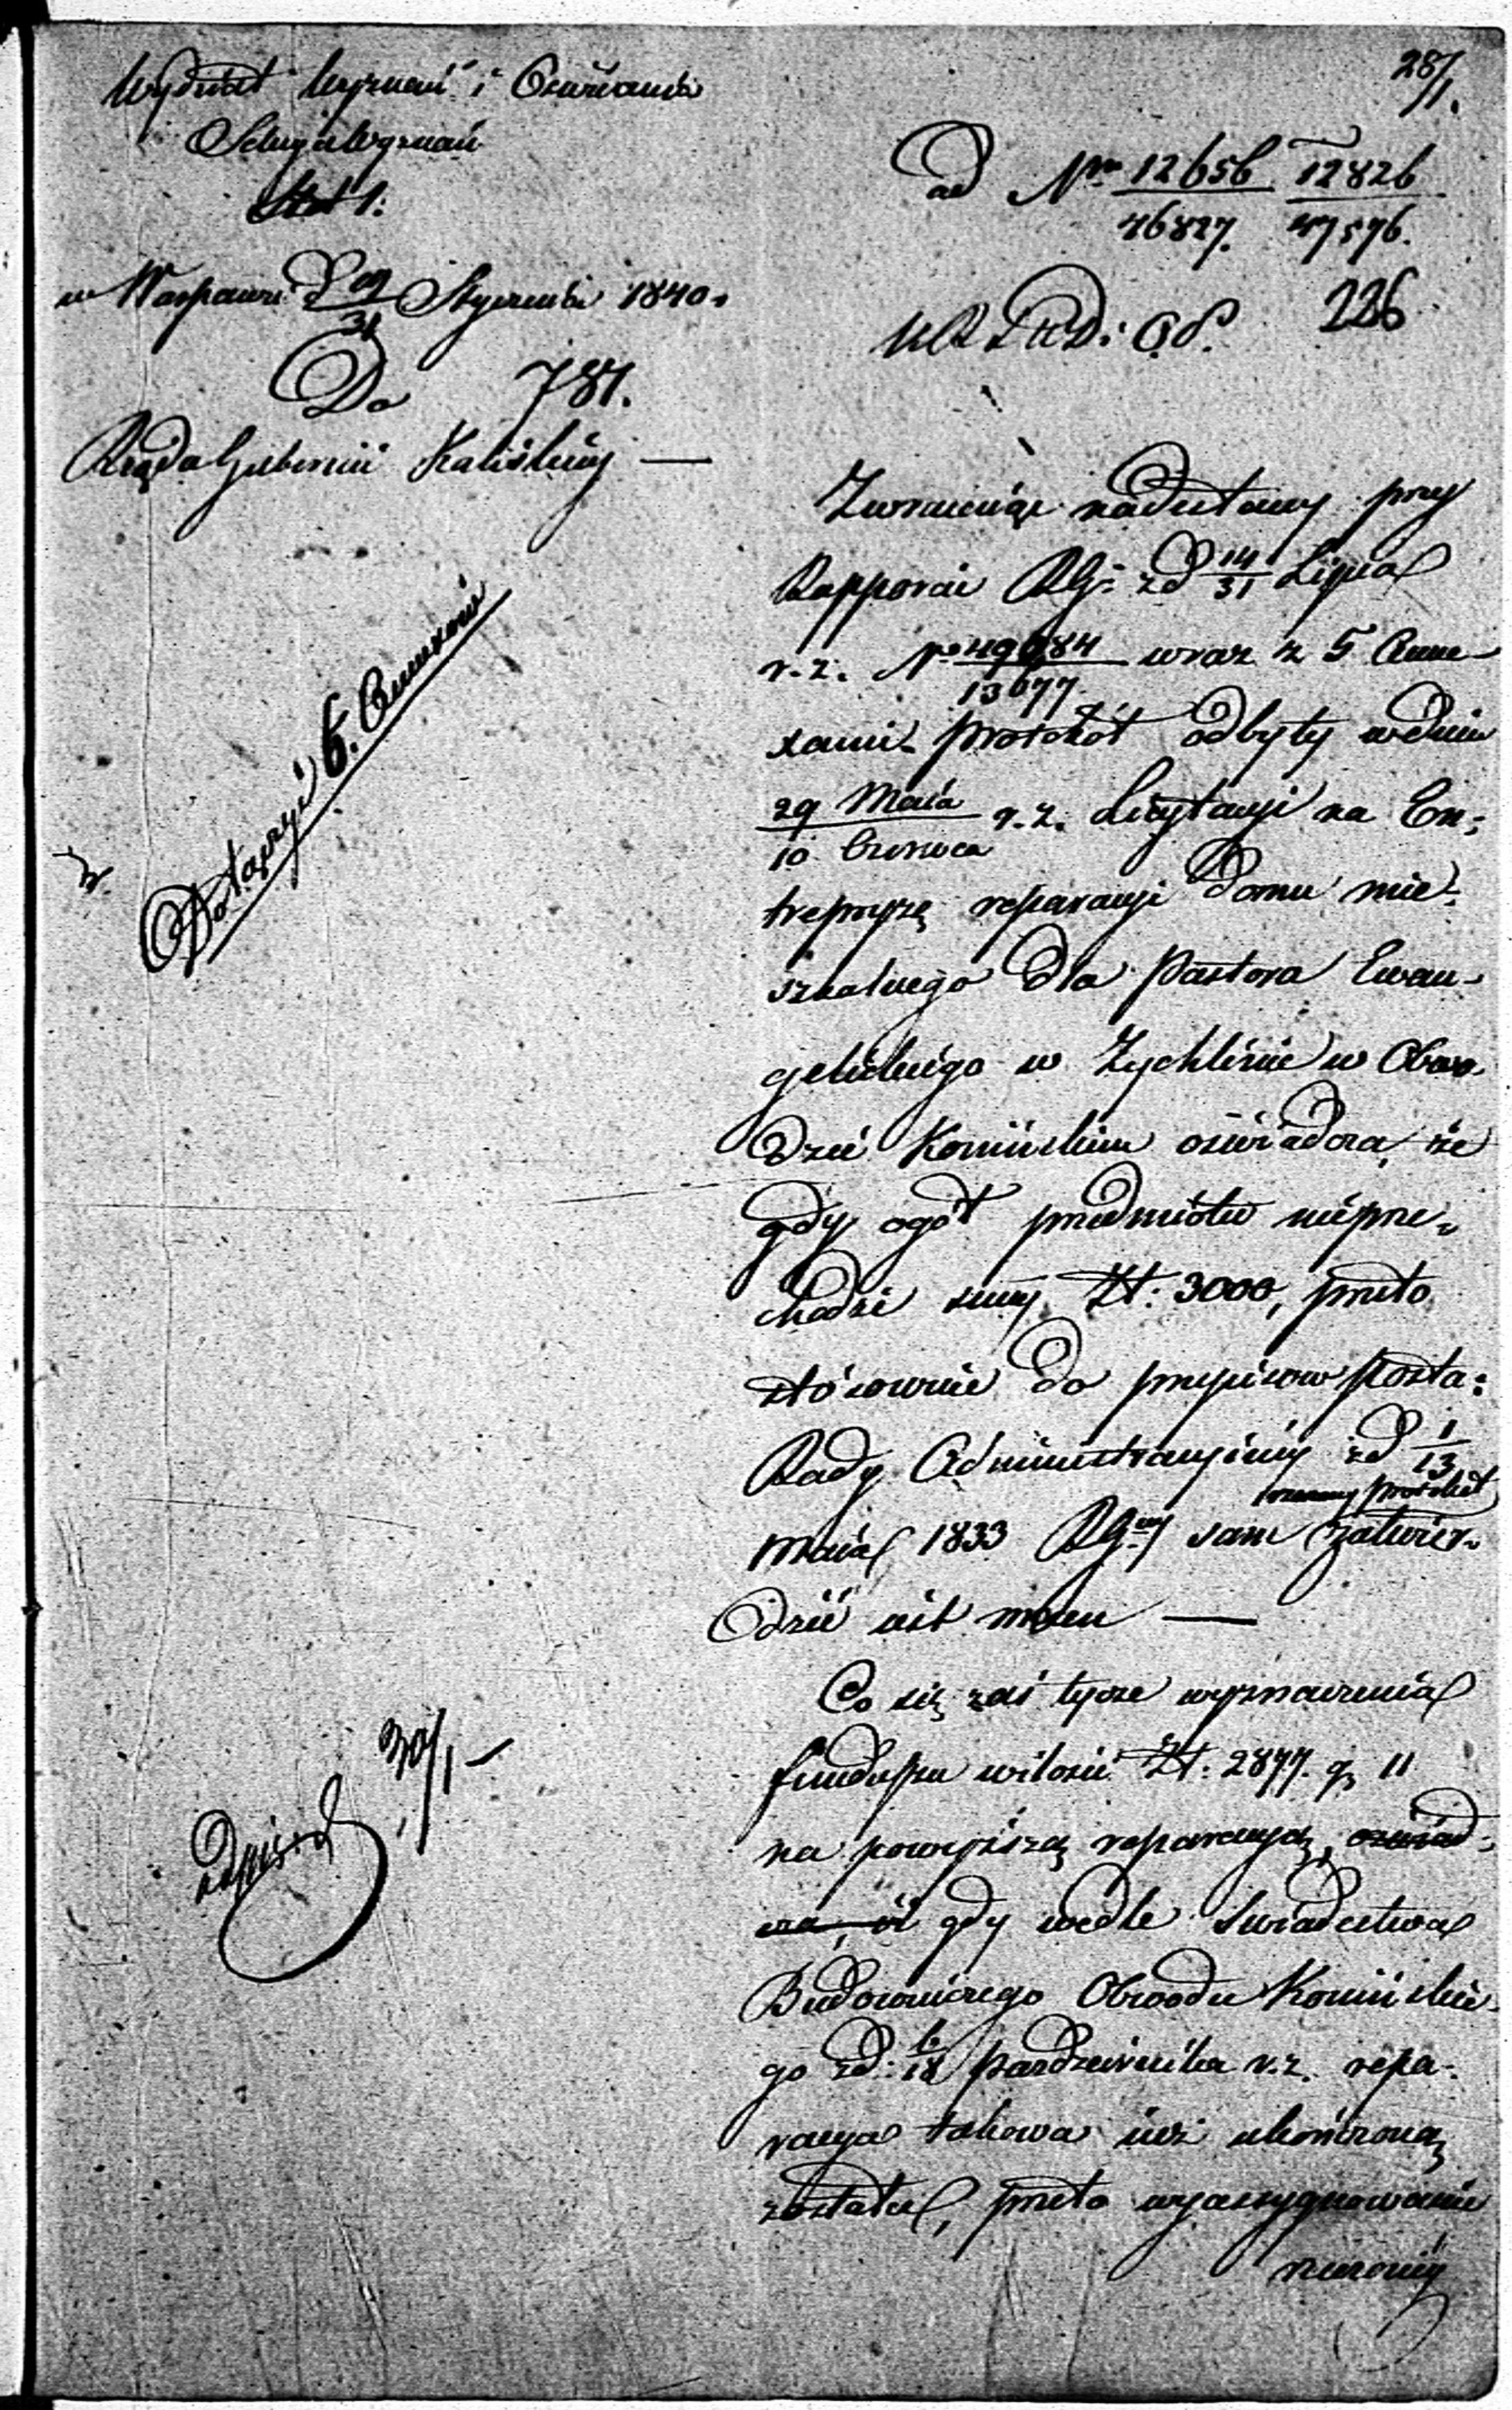 Wydział Wyznań i Oświecenia
Sekcyia Wyznań
Stół 1:
w Warszawie D 19/31 Stycznia 1840.
Do 781.
Rządu Gubernii Kaliskiey —
28/1.
ad Nro 12656/46827. 12826/47576.
226
Zwracaiąc nadesłany przy
Rapporcie RG. zd 14/31 Lipca
r. z. No 49684/13677 wraz z 5 Anne-
xami protokół odbytey w dniu
29 Maia/10 Czerwca r. z. Licytacyi na En-
trepryzę reparacyi domu mie-
szkalnego dla Pastora Ewan-
gelickiego w Zychlinie w Obwo-
dzie Konińskim oświadcza, że
gdy ogół przedmiotu nieprze-
chodzi summy Zł: 3000, przeto
stósownie do przepisów Posta:
Rady Administracyiney zd 1/13
rzeczony protokół
Maia 1833 RGny sam zatwier-
dzić iest mocen —
Co się zaś tycze wyznaczenia
funduszu w ilości Zł: 2877. g. 11
na powyższą reparacyą, oświad-
cza, iż gdy wedle świadectwa
Budowniczego Obwodu Konińskie-
go zd: 6/18 Pazdziernika r. z. repa-
racya takowa iuż ukończoną
została, przeto wyassygnowanie
rzeczoney
Dołączyć 6. Annexów
30/1 —